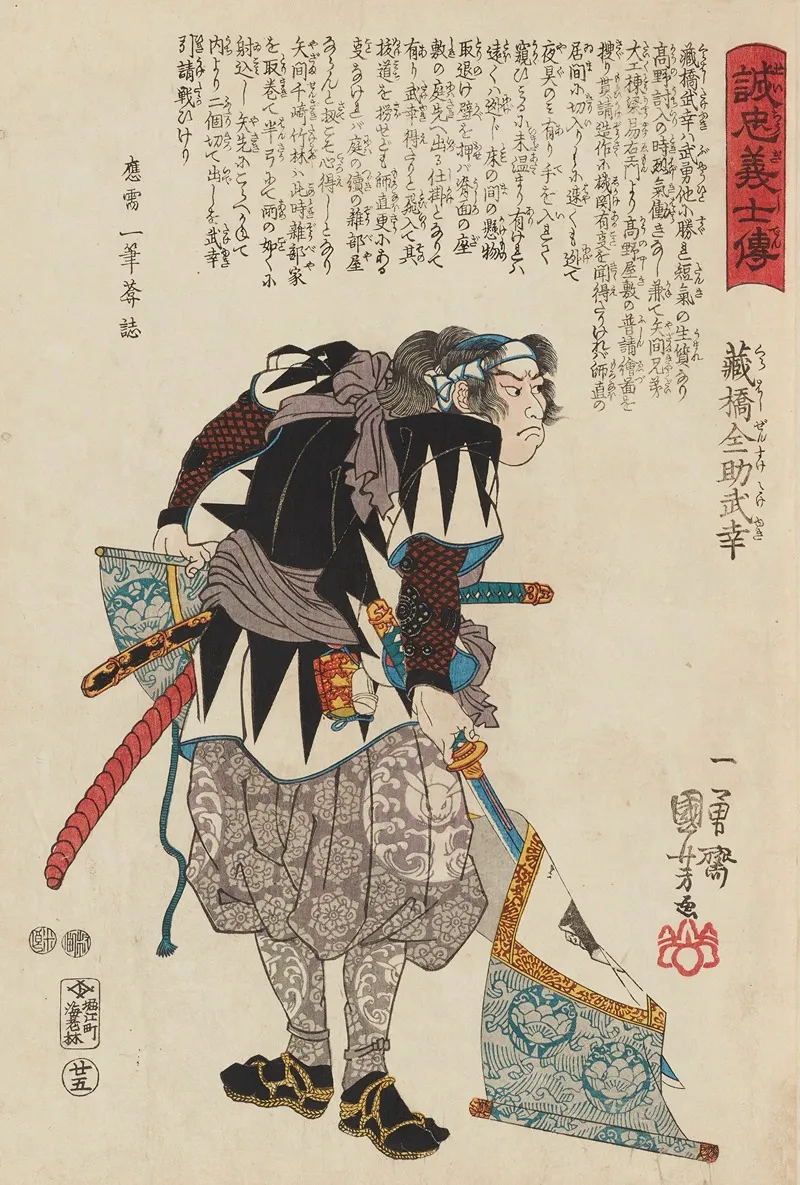 誠忠義士傳
せいちうぎしでん
藏橋全助武幸
くらはしぜんすけたけゆき
藏橋武幸ハ武勇他小勝れ短氣の生質なり
高野討入の時烈氣働きなし兼て矢間兄弟
大工棟梁
右エ門より高野屋敷の普請繪圖を
搜り貫請造作小機関有
を聞得さりけれバ師直の
居間小切入りし小迯くも迯て
夜具のミ有り手を入させ
窺ひミる小未温まり有けれハ
遠くハ迯ド床の間の懸物
取退け壁を押バ
面の座
敷の庭先へ出る仕掛とありて
有り武幸得さりと飛入て其
抜道を搜せども師直更小ある
けれバ庭の續の雜部屋
ならんと扨こそ心得しことあり
矢間千崎竹林ハ此時雜部家
を取巻て半弓にて雨の如く小
射込し矢先にこらへかねて
内より二個切て出しを武幸
引請戰ひけり
應需 一筆菴誌
一勇齋
國芳画
堀江町
海老林
廿五